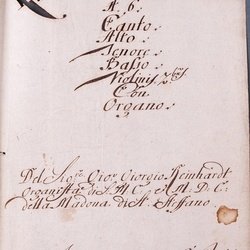 A. 6.
Canto.
Alto.
Tenore.
Basso.
Violinis 2bus
Con
Organo.
Del Sig.re Gio: Giorgio Reinhardt
Organista di S. M. C. e C. M. D. C.
della Madona di St. Steffano.